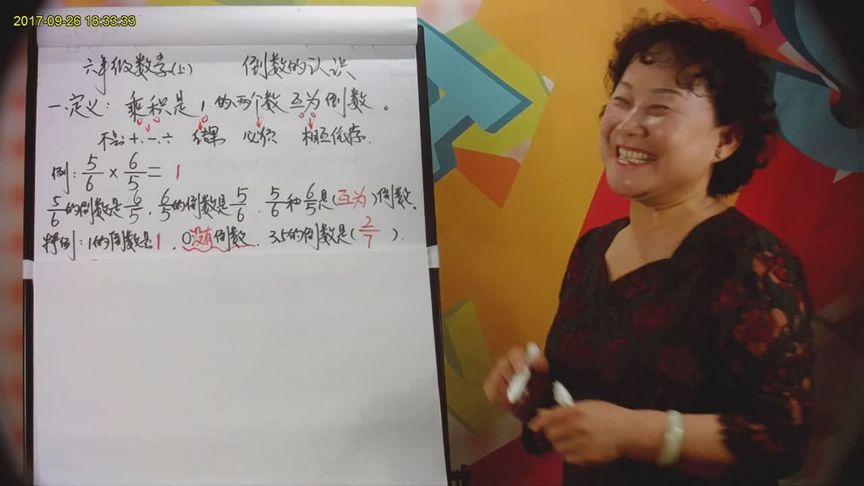 2017-09-26 18:33:33
六年级数学(上) 倒数的认识
一.定义：乘积是1的两个数互为倒数。
不是+.-.÷ 结果 必须 相互依存.
例：5/6 × 6/5 = 1
5/6的倒数是6/5，6/5的倒数是5/6，5/6和6/5是(互为)倒数。
特例：1的倒数是1，0没有倒数，3.5的倒数是(2/7).